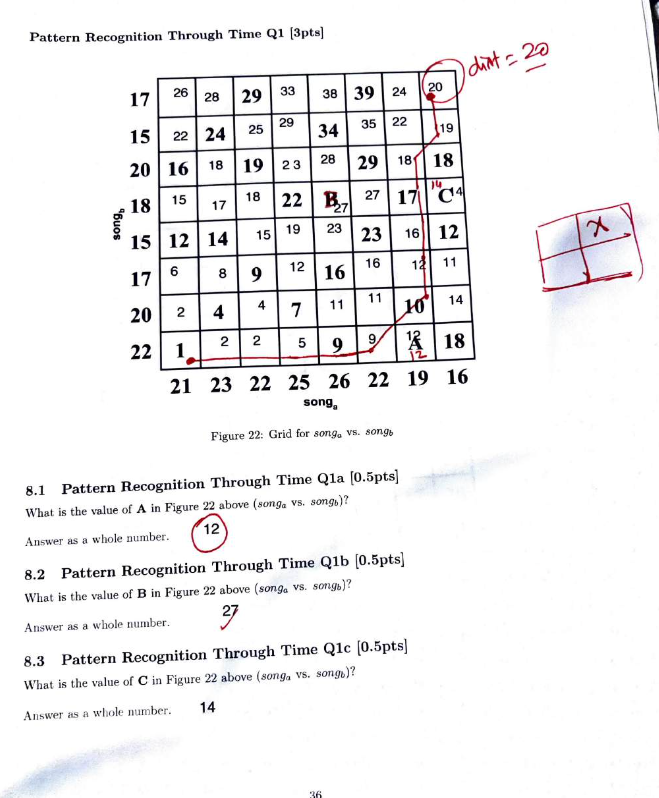 Pattern Recognition Through Time Q1 [3pts]
dist = 20
17 26 28 29 33 38 39 24 20
15 22 24 25 29 34 35 22 19
20 16 18 19 23 28 29 18 18
18 15 17 18 22 B 27 27 17 14 C 14
15 12 14 15 19 23 23 16 12
17 6 8 9 12 16 16 12 11
20 2 4 4 7 11 11 10 14
22 1 2 2 5 9 9 12 A 12 18
21 23 22 25 26 22 19 16
song_b
song_a
x
Figure 22: Grid for song_a vs. song_b
8.1 Pattern Recognition Through Time Q1a [0.5pts]
What is the value of A in Figure 22 above (song_a vs. song_b)?
12
Answer as a whole number.
8.2 Pattern Recognition Through Time Q1b [0.5pts]
What is the value of B in Figure 22 above (song_a vs. song_b)?
27
Answer as a whole number.
8.3 Pattern Recognition Through Time Q1c [0.5pts]
What is the value of C in Figure 22 above (song_a vs. song_b)?
Answer as a whole number. 14
36